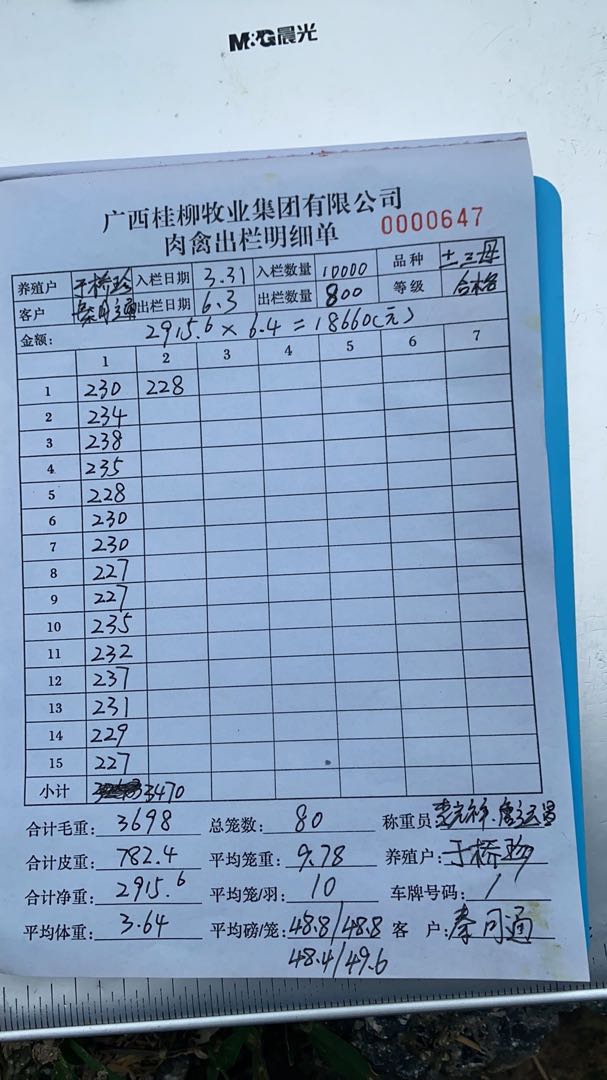 M&G晨光
广西桂柳牧业集团有限公司
肉禽出栏明细单 0000647
养殖户 于桥珍 入栏日期 3.31 入栏数量 10000 品种 土.三.母
客户 秦同通 出栏日期 6.3 出栏数量 800 等级 合格
金额: 2915.6 × 6.4 = 18660(元)
1 2 3 4 5 6 7
1 230 228
2 234
3 238
4 235
5 228
6 230
7 230
8 227
9 227
10 235
11 232
12 237
13 231
14 229
15 227
小计 3470
合计毛重: 3698 总笼数: 80 称重员
合计皮重: 782.4 平均笼重: 9.78 养殖户: 于桥珍
合计净重: 2915.6 平均笼/羽: 10 车牌号码: /
平均体重: 3.64 平均磅/笼: 48.8/48.8 客 户: 秦同通
48.4/49.6